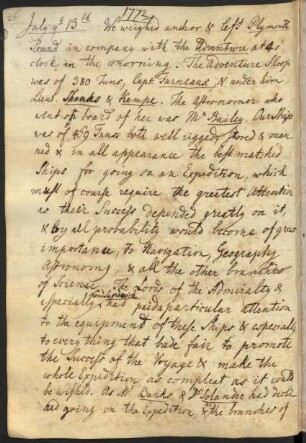 1772
July ye 13th We weighed anchor & left Plymouth
Sound in company with the Adventure at 4 o
clock in the morning. The Adventure Sloop
was of 380 Tuns, Capt Furneaux, & under him
Lieut Shanks & Kempe. The Astronomer who
went on board of her was Mr Bailey. Our Ship
was of 459 Tuns both well rigged, stored & man
ned & in all appearance the best matched
Ships for going on an Expedition, which
must of course require the greatest Attention
as their Success depended greatly on it,
& by all probability would become of great
importance, to Navigation, Geography
Astronomy & all the other branches
of Science. The Lords of the Admiralty &
especially had paid a particular attention
to the equipment of these Ships & especially
to every thing that bade fair to promote
the Success of the Voyage & make the
whole Expedition as compleat as it could
be wished. As Mr Banks & Dr Solander had decli
ned going on the Expedition, & the branches of